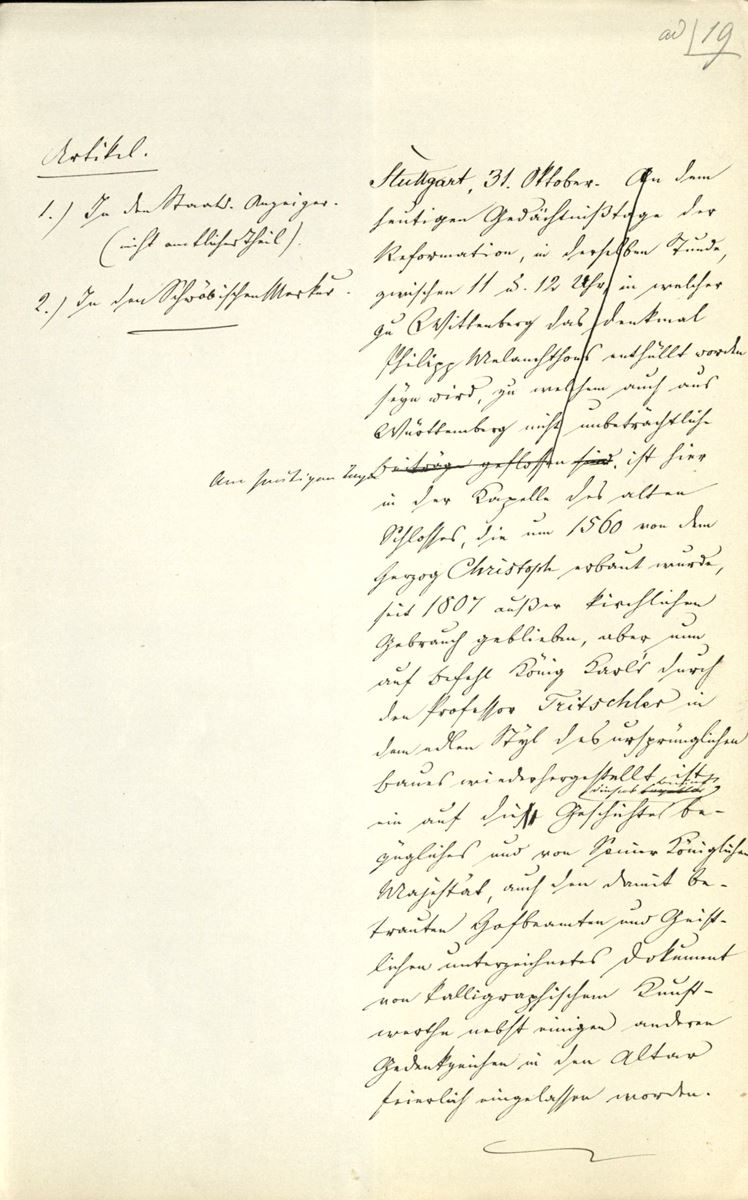 ad 19
Artikel.
1.) In den Staats-Anzeiger.
(nicht amtlicher Theil).
2.) In den Schwäbischen Merkur.
Stuttgart, 31. Oktober. An dem
heutigen Gedächtnißtage der
Reformation, in derselben Stunde,
zwischen 11 u. 12 Uhr, in welcher
zu Wittenberg das Denkmal
Philipp Melanchthons enthüllt worden
seyn wird, zu welchem auch aus
Württemberg nicht unbeträchtliche
Am heutigen Tage
Beiträge geflossen sind, ist hier
in der Kapelle des alten
Schlosses, die um 1560 von dem
Herzog Christoph erbaut wurde,
seit 1807 außer kirchlichem
Gebrauch geblieben, aber nun
auf Befehl König Karl's durch
den Professor Tritschler in
dem edlen Styl des ursprünglichen
Baues wiederhergestellt ist,
dieses
ein auf die Geschichte be-
zügliches und von Seiner Königlichen
Majestät, auch den damit be-
trauten Hofbeamten und Geist-
lichen unterzeichnetes Dokument
von kalligraphischem Kunst-
werthe nebst einigen anderen
Gedenkzeichen in den Altar
feierlich eingelassen worden.